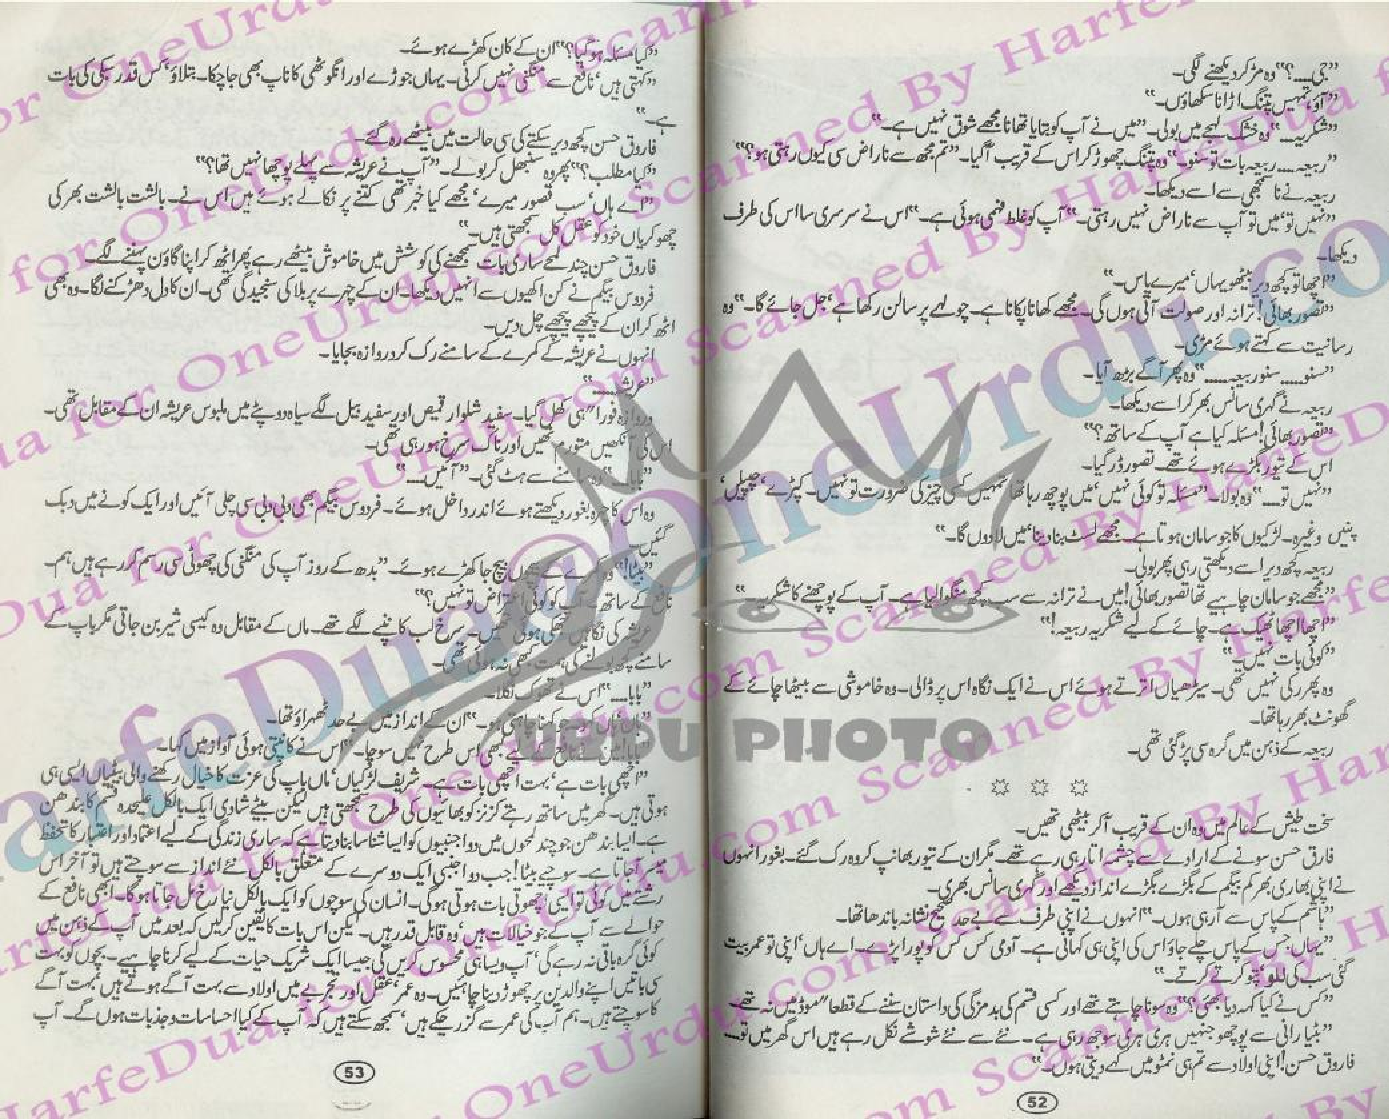 "جی.....؟" وہ مڑ کر دیکھنے لگی۔
"آؤ تمہیں پتنگ اڑانا سکھاؤں۔"
"شکریہ۔" وہ خشک لہجے میں بولی۔ "میں نے آپ کو بتایا تھا نا مجھے شوق نہیں ہے۔"
"ربیعہ..... ربیعہ بات تو سنو۔" وہ پتنگ چھوڑ کر اس کے قریب آگیا۔ "تم مجھ سے ناراض سی کیوں رہتی ہو؟"
ربیعہ نے ناسمجھی سے اسے دیکھا۔
"نہیں تو، میں تو آپ سے ناراض نہیں رہتی۔" "آپ کو غلط فہمی ہوئی ہے۔" اس نے سرسری سا اس کی طرف
دیکھا۔
"اچھا تو کچھ دیر بیٹھو یہاں، میرے پاس۔"
"تصور بھائی! ترانہ اور صولت آتی ہوں گی۔ مجھے کھانا پکانا ہے۔ چولہے پر سالن رکھا ہے، جل جائے گا۔" وہ
رسانیت سے کہتے ہوئے مڑی۔
"سنو..... سنو ربیعہ....." وہ پھر آگے بڑھ آیا۔
ربیعہ نے گہری سانس بھر کر اسے دیکھا۔
"تصور بھائی! مسئلہ کیا ہے آپ کے ساتھ؟"
اس کے تیور بگڑے ہوئے تھے۔ تصور ڈر گیا۔
"نہیں تو....." وہ بولا۔ "مسئلہ تو کوئی نہیں، میں پوچھ رہا تھا تمہیں کسی چیز کی ضرورت تو نہیں۔ کپڑے، چپلیں،
پنیں وغیرہ۔ لڑکیوں کا جو سامان ہوتا ہے۔ مجھے لسٹ بنا دینا، میں لا دوں گا۔"
ربیعہ کچھ دیر اسے دیکھتی رہی پھر بولی۔
"مجھے جو سامان چاہیے تھا تصور بھائی! میں نے ترانہ سے سب کچھ منگوا لیا ہے۔ آپ کے پوچھنے کا شکریہ۔"
"اچھا اچھا ٹھیک ہے۔ چائے کے لیے شکریہ ربیعہ!"
"کوئی بات نہیں۔"
وہ پھر رکی نہیں تھی۔ سیڑھیاں اترتے ہوئے اس نے ایک نگاہ اس پر ڈالی۔ وہ خاموشی سے بیٹھا چائے کے
گھونٹ بھر رہا تھا۔
ربیعہ کے ذہن میں گرہ سی پڑ گئی تھی۔
سخت طیش کے عالم میں وہ ان کے قریب آ کر بیٹھی تھیں۔
فاروق حسن سونے کے ارادے سے چشمہ اتار ہی رہے تھے۔ مگر ان کے تیور بھانپ کر وہ رک گئے۔ بغور انہوں
نے اپنی بھاری بھرکم بیگم کے بگڑے بگڑے انداز دیکھے اور گہری سانس بھری۔
"ہاشم کے پاس سے آرہی ہوں۔" انہوں نے اپنی طرف سے بے حد صحیح نشانہ باندھا تھا۔
"یہاں جس کے پاس چلے جاؤ اس کی اپنی ہی کہانی ہے۔ آدمی کس کس کو پورا پڑے۔ اے ہاں، اپنی تو عمر بیت
گئی سب کی للو پتو کرتے کرتے۔"
"کس نے کیا کہہ دیا بھئی؟" وہ سونا چاہتے تھے اور کسی قسم کی بدمزگی کی داستان سننے کے قطعاً موڈ میں نہ تھے۔
"بٹیا رانی سے پوچھو جنہیں ہری ہری سوجھ رہی ہے۔ نئے سے نئے شوشے نکل رہے ہیں اس گھر میں تو.....
فاروق حسن! اپنی اولاد سے تم ہی نمٹو میں کہے دیتی ہوں۔"
52
"کیا مسئلہ ہو گیا؟" ان کے کان کھڑے ہوئے۔
"کہتی ہیں، نافع سے منگنی نہیں کرنی۔ یہاں جوڑے اور انگوٹھی کا ناپ بھی جا چکا۔ بتلاؤ، کس قدر سبکی کی بات
ہے۔"
فاروق حسن کچھ دیر سکتے کی سی حالت میں بیٹھے رہ گئے۔
"کیا مطلب؟" پھر وہ سنبھل کر بولے۔ "آپ نے عریشہ سے پہلے پوچھا نہیں تھا؟"
"اے ہاں، سب قصور میرے، مجھے کیا خبر تھی کتنے پر نکالے ہوئے ہیں اس نے۔ بالشت بالشت بھر کی
چھوکریاں خود کو عقل کل سمجھتی ہیں۔"
فاروق حسن چند لمحے ساری بات سمجھنے کی کوشش میں خاموش بیٹھے رہے پھر اٹھ کر اپنا گاؤن پہننے لگے۔
فردوس بیگم نے کن اکھیوں سے انہیں دیکھا۔ ان کے چہرے پر بلا کی سنجیدگی تھی۔ ان کا دل دھڑکنے لگا۔ وہ بھی
اٹھ کر ان کے پیچھے پیچھے چل دیں۔
انہوں نے عریشہ کے کمرے کے سامنے رک کر دروازہ بجایا۔
"عریشہ....."
دروازہ فوراً ہی کھل گیا۔ سفید شلوار قمیص اور سفید بیل لگے سیاہ دوپٹے میں ملبوس عریشہ ان کے مقابل تھی۔
اس کی آنکھیں متورم تھیں اور ناک سرخ ہو رہی تھی۔
"بابا....." وہ سامنے سے ہٹ گئی۔ "آئیں....."
وہ اس کا چہرہ بغور دیکھتے ہوئے اندر داخل ہوئے۔ فردوس بیگم بھی دبی دبی سی چلی آئیں اور ایک کونے میں دبک
گئیں۔
"بیٹا!" وہ کمرے کے بیچوں بیچ جا کھڑے ہوئے۔ "بدھ کے روز آپ کی منگنی کی چھوٹی سی رسم کر رہے ہیں ہم۔
نافع کے ساتھ۔ آپ کو کوئی اعتراض تو نہیں؟"
عریشہ کی نگاہیں جھکی ہوئی تھیں۔ سرخ لب کانپنے لگے تھے۔ ماں کے مقابل وہ کیسی شیر بن جاتی مگر باپ کے
سامنے کچھ بولنے کی ہمت کبھی نہ ہوئی تھی۔
"بابا....." اس نے تھوک نگلا۔
"ہاں ہاں کہو جو کہنا چاہتی ہو۔" ان کے انداز میں بے حد ٹھہراؤ تھا۔
کبھی اس طرح نہیں سوچا۔" اس نے کانپتی ہوئی آواز میں کہا۔
"اچھی بات ہے، بہت اچھی بات ہے۔ شریف لڑکیاں، ماں باپ کی عزت کا خیال رکھنے والی بیٹیاں ایسی ہی
ہوتی ہیں۔ گھر میں ساتھ رہتے کزنز کو بھائیوں کی طرح سمجھتی ہیں لیکن بیٹے شادی ایک بالکل علیحدہ قسم کا بندھن
ہے۔ ایسا بندھن جو چند لمحوں میں دو اجنبیوں کو ایسا شناسا بنا دیتا ہے کہ ساری زندگی کے لیے اعتماد اور اعتبار کا تحفظ
میسر آ جاتا ہے۔ سوچیے بیٹا! جب دو اجنبی ایک دوسرے کے متعلق بالکل نئے انداز سے سوچتے ہیں تو آخر اس
رشتے میں کوئی تو ایسی اچھوتی بات ہوتی ہو گی۔ انسان کی سوچوں کو ایک بالکل نیا رخ مل جاتا ہو گا۔ ابھی نافع کے
حوالے سے آپ کے جو خیالات ہیں، وہ قابل قدر ہیں۔ لیکن اس بات کا یقین کر لیں کہ بعد میں آپ کے ذہن میں
کوئی گرہ باقی نہ رہے گی، آپ ویسا ہی محسوس کریں گی جیسا ایک شریک حیات کے لیے کرنا چاہیے۔ بچوں کو بہت
سی باتیں اپنے والدین پر چھوڑ دینا چاہئیں۔ وہ عمر، عقل اور تجربے میں اولاد سے بہت آگے ہوتے ہیں، بہت آگے
کا سوچتے ہیں۔ ہم آپ کی عمر سے گزر چکے ہیں، سمجھ سکتے ہیں کہ آپ کے کیا احساسات و جذبات ہوں گے۔ آپ
53
HarfeDua@OneUrdu.com
Scanned By HarfeDua for OneUrdu.com
URDU PHOTO